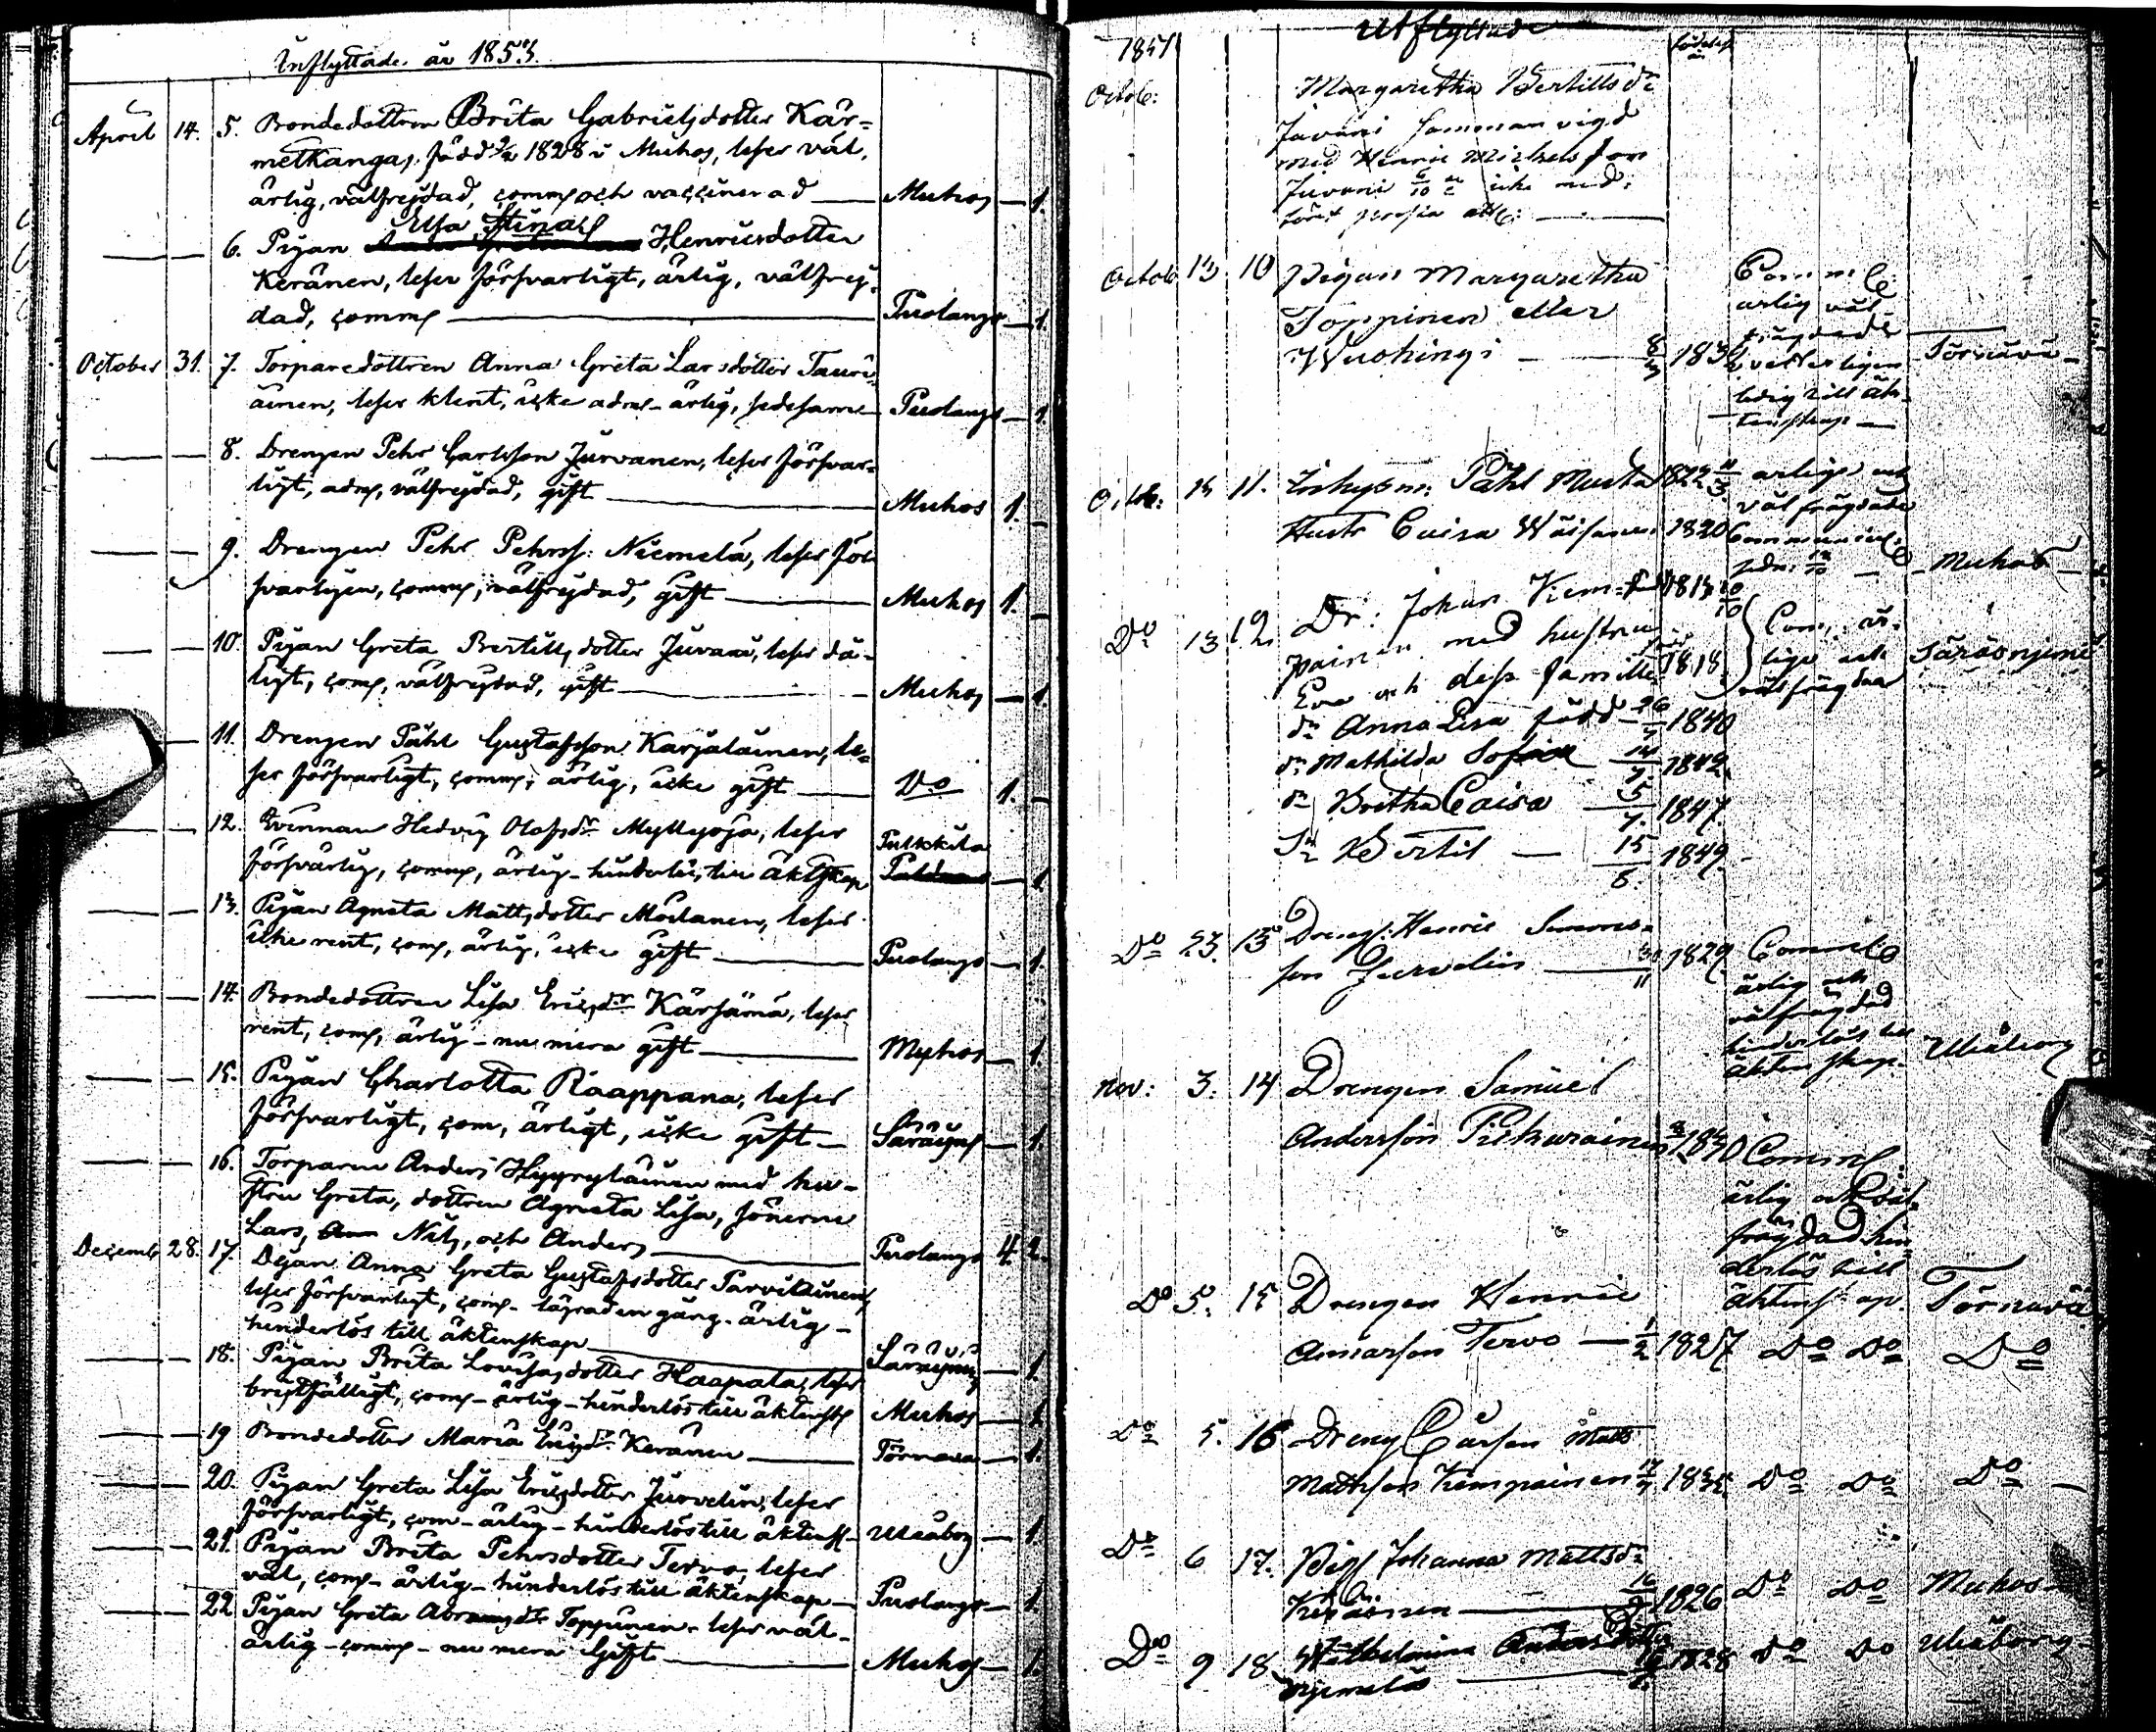 Inflyttade. år 1853.
April 14. 5. Bondedottren Brita Gabrielsdotter Kär-
metkangas, född 9/2 1828 i Muhos, läser väl,
ärlig, välfrejdad, comm. och vaccinerad — Muhos — 1.
Elsa Stina
— 6. Pigan Henricsdotter
Keränen, läser försvarligt, ärlig, välfrej-
dad, comm. — Puolango — 1.
October 31. 7. Torparedottren Anna Greta Larsdotter Tauri-
ainen, läser klent, icke adm. ärlig, sedesam — Puolango — 1.
— — 8. Drengen Pehr Carlsson Jurvanen, läser försvar-
ligt, adm., välfrejdad, gift — Muhos 1. —
— — 9. Drengen Pehr Pehrss: Niemelä, läser för-
svarligen, comm., välfrejdad, gift — Muhos 1. —
— — 10. Pigan Greta Bertilsdotter Juvani, läser då-
ligt, com., välfrejdad, gift — Muhos — 1
— 11. Drengen Påhl Gustafsson Karjalainen, lä-
ser försvarligt, comm., ärlig, icke gift — Do 1. —
— — 12. Qvinnan Hedvig Olofsdr Myllyoja, läser Pulkkila
försvarlig, comm., ärlig - hinderlös till äktskap — 1.
— — 13. Pigan Agneta Mattsdotter Moilanen, läser
icke rent, com., ärlig, icke gift — Puolango — 1.
— — 14. Bondedottren Lisa Ericsdr Kärsämä, läser
rent, com., ärlig - nu mera gift — Muhos — 1.
— — 15. Pigan Charlotta Raappana, läser
försvarligt, com., ärligt, icke gift — Säräisn. — 1.
— — 16. Torparen Anders Hyyryläinen med hu-
stru Greta, dottren Agneta Lisa, sönerne
Lars, Nils, och Anders — Puolango 4. 2.
Decemb. 28. 17. Pigan Anna Greta Gustafsdotter Parviainen,
läser försvarligt, com. - lägrad en gång - ärlig -
hinderlös till äktenskap — Säräisn. — 1
— — 18. Pigan Brita Lovisasdotter Haapala, läser
bristfälligt, com. - ärlig - hinderlös till äktensk. Muhos — 1.
— — 19 Bondedotter Maria Ericsdr Keränen — Törnävä — 1.
— — 20. Pigan Greta Lisa Ericsdotter Jurvelin, läser
försvarligt, com - ärlig - hinderlös till äktensk. — Uleåborg — 1.
— — 21. Pigan Brita Pehrsdotter Tervo, läser
väl, com. - ärlig - hinderlös till äktenskap — Puolango — 1.
— — 22 Pigan Greta Abramsdr Toppinen - läser väl -
ärlig - comm. - nu mera Gift — Muhos — 1.
1851 Utflyttade födelse
Octob: Margaretha Bertills dr
Juvani Samman vigd
med Henric Michels son
Juvani 6/10
Octob 13 10 Pigan Margaretha
Toppinen eller
Wuohingi — 1832 Törnävä —
Comm.
ärlig väl
frägdade
ledig till äk-
tenskap —
Octb: 11. Påhl Musta 1822 ärlige och
väl frägdade
Hustr Caisa Wäisänen 1820 Muhos —
Do 13 12. Dr: Johan Kem-
painen med hustru
Eva och dess familie 1818. Com. är-
lige och
väl frägdad Säräisniemi
dr Anna Lisa född 26 1840
dr Mathilda Sofia 14/7 1842
dr Britha Caisa 5/7. 1847.
Sn Bertil — 15/6. 1849.
Do 23. 13 Dreng: Henric Simons-
son Jurvelin — 30/11 1829 Comm.
ärlig och
välfrägdad
hinderlös till
äktenskap. Uleåborg
Nov: 3. 14 Drengen Samuel
Andersson Pikkarainen 1830 Comm.
ärlig och väl-
frägdad hin-
derlös till
äktenskap Törnävä
Do 5. 15 Drengen Henric
Tervo — 1/2 1827 Do Do Do
Do 5. 16 Dreng Matts
Mathson Kempainen Do Do Do —
Do 6 17. Pig. Johanna Mattsdr
— 16 1826 Do Do Muhos —
Do 9 18. Wilhelmina Andersdotter
1828 Do Do Uleåborg —